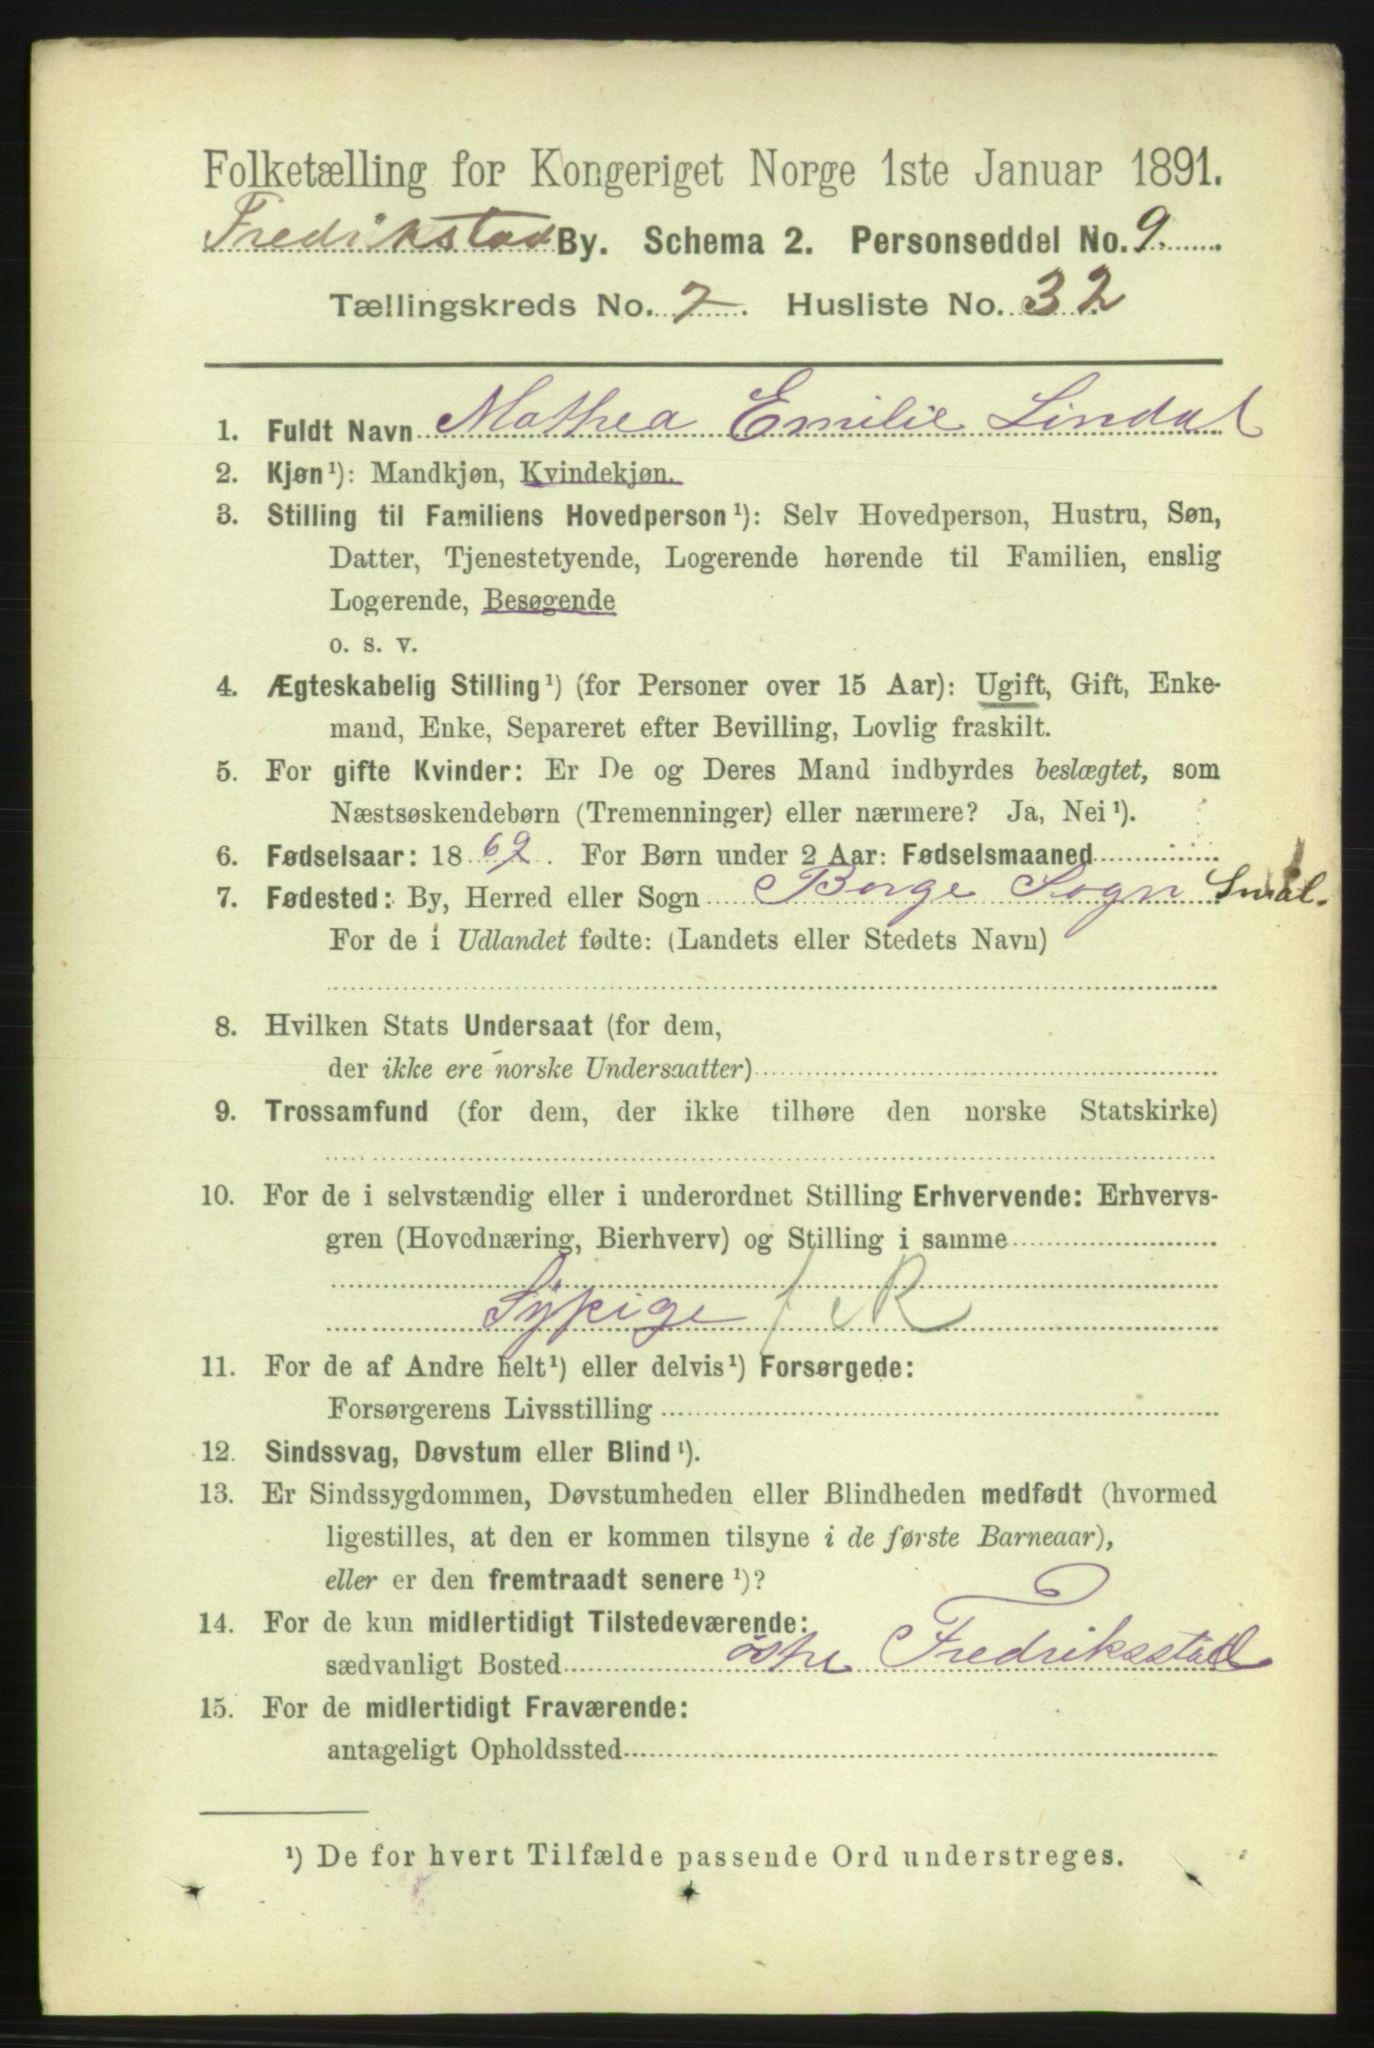 Folketælling for Kongeriget Norge 1ste Januar 1891.
Fredrikstad By. Schema 2. Personseddel No. 9
Tællingskreds No. 7. Husliste No. 32
1. Fuldt Navn Mathea Emilie Lindal
2. Kjøn¹): Mandkjøn, Kvindekjøn.
3. Stilling til Familiens Hovedperson¹): Selv Hovedperson, Hustru, Søn,
Datter, Tjenestetyende, Logerende hørende til Familien, enslig
Logerende, Besøgende
o. s. v.
4. Ægteskabelig Stilling¹) (for Personer over 15 Aar): Ugift, Gift, Enke-
mand, Enke, Separeret efter Bevilling, Lovlig fraskilt.
5. For gifte Kvinder: Er De og Deres Mand indbyrdes beslægtet, som
Næstsøskendebørn (Tremenninger) eller nærmere? Ja, Nei¹).
6. Fødselsaar: 1869. For Børn under 2 Aar: Fødselsmaaned
7. Fødested: By, Herred eller Sogn Borge Sogn Smål.
For de i Udlandet fødte: (Landets eller Stedets Navn)
8. Hvilken Stats Undersaat (for dem,
der ikke ere norske Undersaatter)
9. Trossamfund (for dem, der ikke tilhøre den norske Statskirke)
10. For de i selvstændig eller i underordnet Stilling Erhvervende: Erhvervs-
gren (Hovednæring, Bierhverv) og Stilling i samme
Sypige / R
11. For de af Andre helt¹) eller delvis¹) Forsørgede:
Forsørgerens Livsstilling
12. Sindssvag, Døvstum eller Blind¹).
13. Er Sindssygdommen, Døvstumheden eller Blindheden medfødt (hvormed
ligestilles, at den er kommen tilsyne i de første Barneaar),
eller er den fremtraadt senere¹)?
14. For de kun midlertidigt Tilstedeværende:
sædvanligt Bosted östre Fredriksstad
15. For de midlertidigt Fraværende:
antageligt Opholdssted
¹) De for hvert Tilfælde passende Ord understreges.